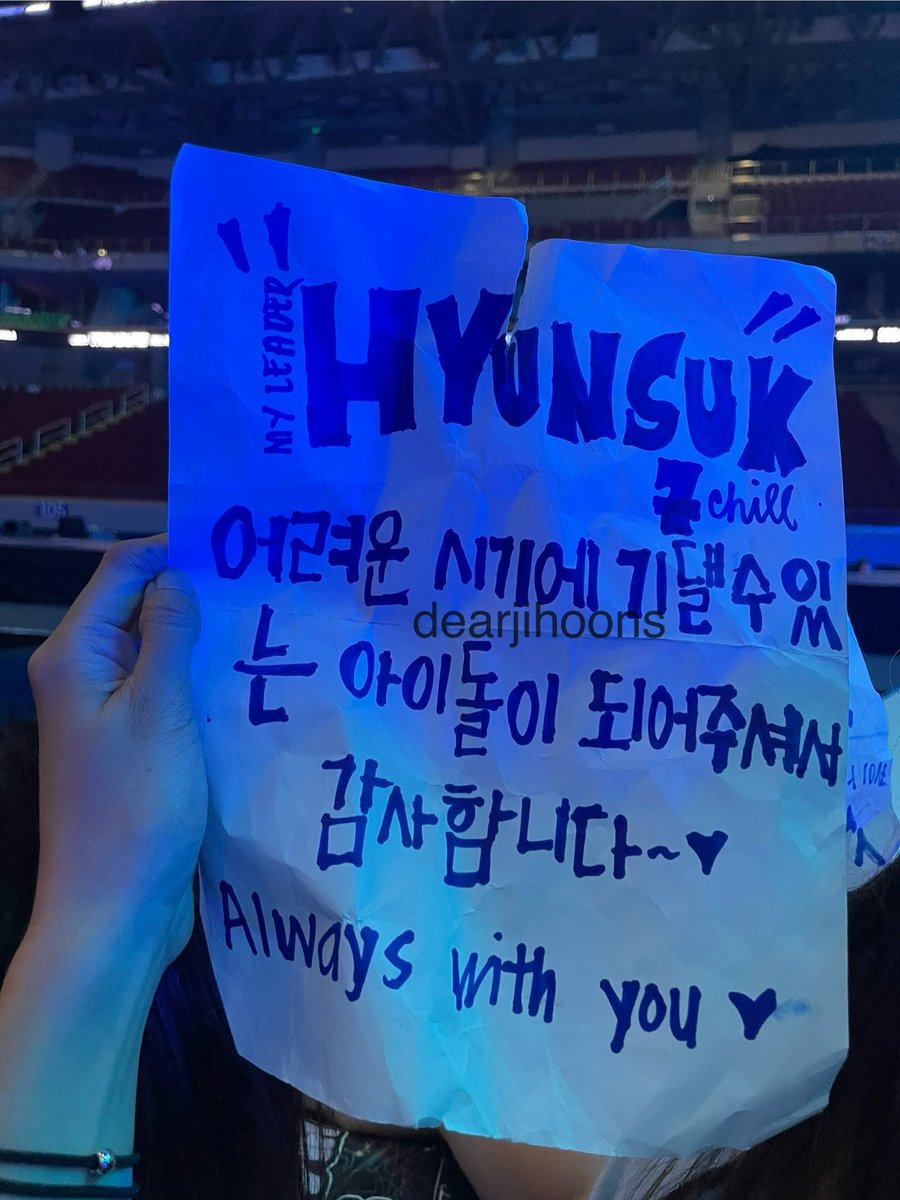 "MY LEADER HYUNSUK"
굳 chill
어려운 시기에 기댈수있
는 아이돌이 되어주셔서
dearjihoons
감사합니다~♥
Always with you ♥
105